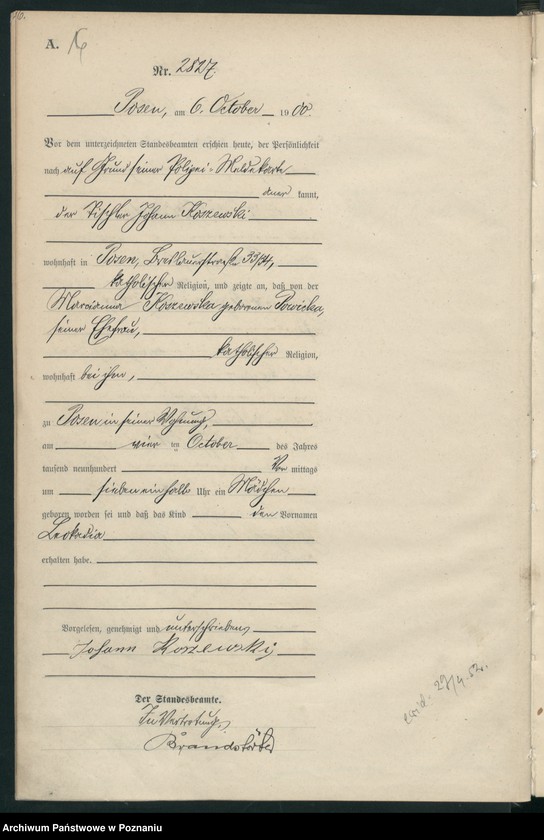 A.
Nr. 2827.
Posen, am 6. October 1900.
Vor dem unterzeichneten Standesbeamten erschien heute, der Persönlichkeit
nach auf Grund seiner Polizei-Meldekarte
kannt,
der Tischler Johann Koszewski
wohnhaft in Posen, Breslauerstraße 33/34,
katholischer Religion, und zeigte an, daß von der
Marcianna Koszewska geborenen
seiner Ehefrau,
katholischer Religion,
wohnhaft bei ihm,
zu Posen in seiner Wohnung,
am vier ten October des Jahres
tausend neunhundert Vor mittags
um sieben einhalb Uhr ein Mädchen
geboren worden sei und daß das Kind den Vornamen
Leokadia
erhalten habe.
Vorgelesen, genehmigt und unterschrieben
Johann Koszewski
Der Standesbeamte.
In Vertretung.
29/4.52.
Archiwum Państwowe w Poznaniu